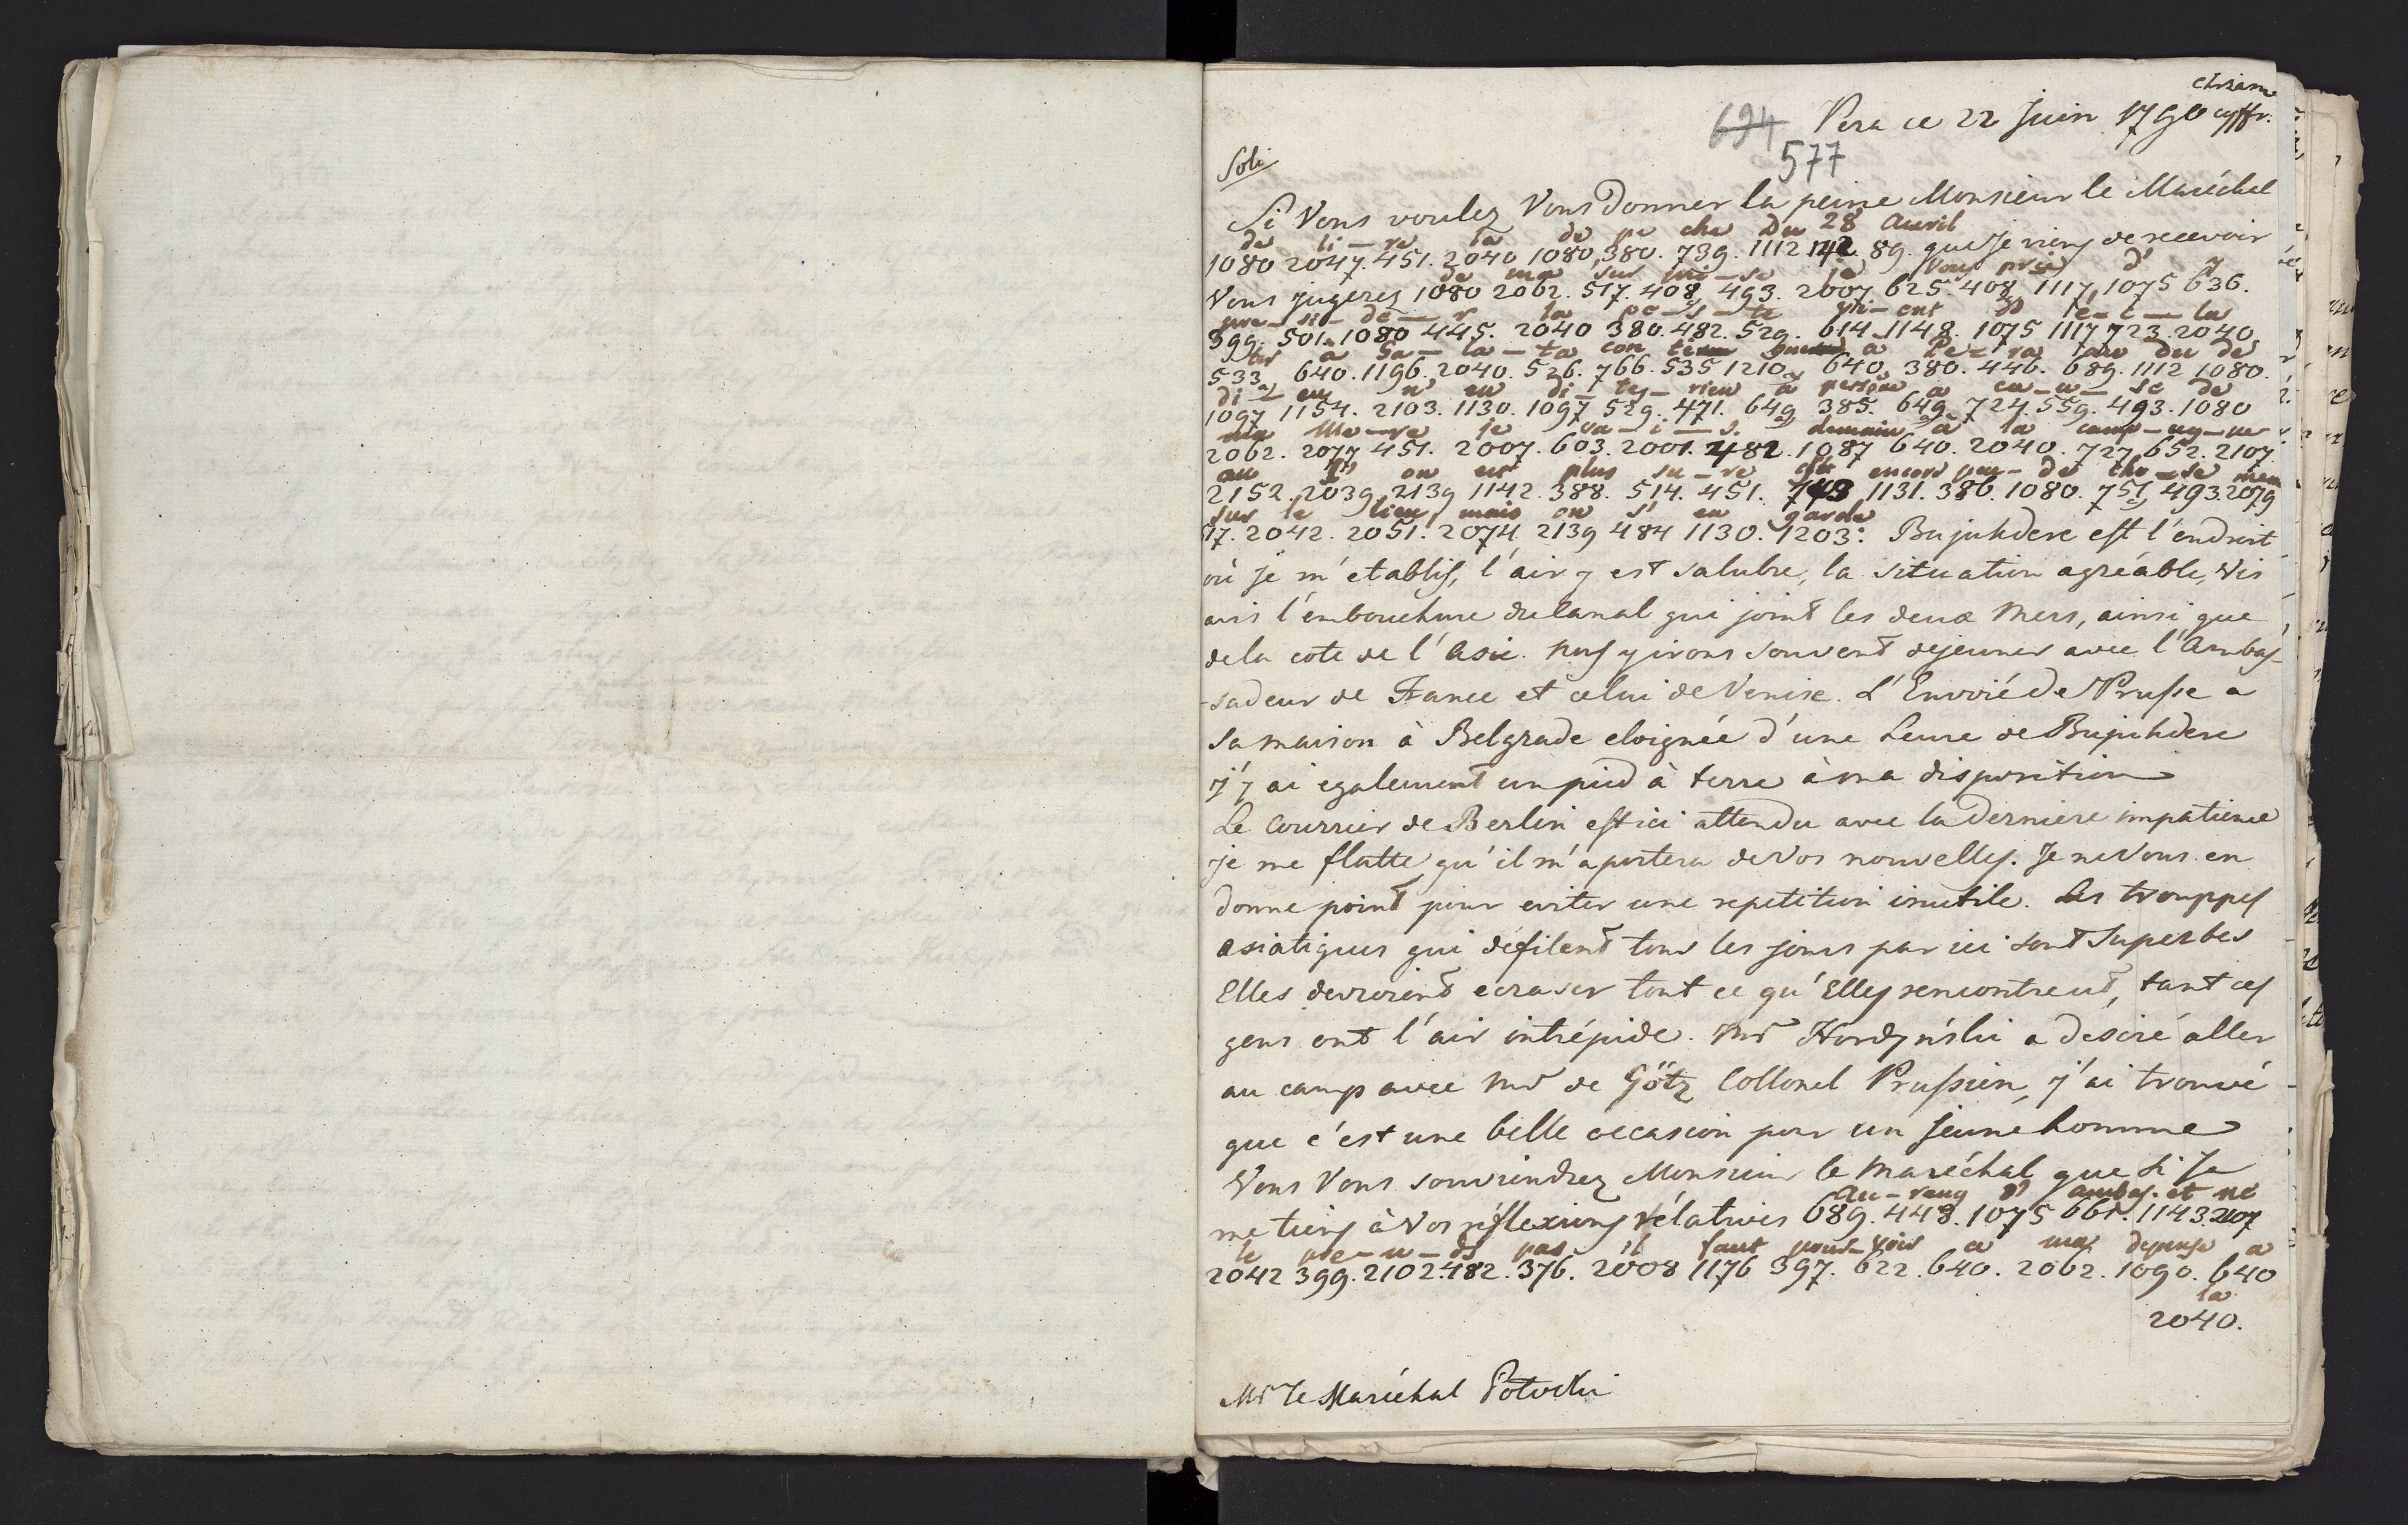 chisame
694 Pera ce 22 Juin 1790 cyffr.
577
Soli
Si Vous voulez Vous donner la peine Monsieur le Maréchal
de li-re la de pe che du 28 Auvril
1080 2047. 451. 2040 1080, 380. 739. 1112 142. 89. que Je viens de recevoir
de ma sur pri-se je vous prie d' y
Vous jugerez 1080 2062. 517. 408 493. 2007 625. 408 1117, 1075 636.
pre-si-de-r la pe-s-te
399. 501. 1080 445. 2040 380. 482. 529. 614. 1148. 1075 1117 723. 2040
a Ga-la-ta con a Pe-ra du de
533 640. 1196. 2040. 526. 766. 535 1210 640. 380. 446. 689. 1112 1080.
di en n' en di-tes-rien à persone a cu-u-se de
1097 1154. 2103. 1130. 1097 529. 471. 649 385. 649 724. 559. 493. 1080
ma Me-re je va-i-s. demain à la camp-ag-ne
2062. 2077 451. 2007. 603. 2001. 482. 1087 640. 2040. 727, 652. 2107
ou l' on est plus su-re encore peu-de cho-se
2152. 2039. 2139 1142. 388. 514. 451. 743 1131. 386. 1080. 751, 493. 2079
sur le lieu, mais on s' en garde
517. 2042. 2051. 2074 2139 484 1130. 1203: Bujukdere est l'endroit
où je m'etablis, l'air y est salubre, la situation agréable, Vis
avis l'embouchure du Canal qui joint les deux Mers, ainsi que
de la cote de l'Asie. nous y irons souvent dejeuner avec l'Ambas-
-sadeur de France et celui de Venise. L'Envoié de Prusse a
sa maison à Belgrade eloignée d'une heure de Bujukdere
j'y ai egalement un pied à terre à ma disposition
Le Courrier de Berlin est ici attendu avec la derniere impatience
je me flatte qu'il m'aportera de Vos nouvelles. Je ne Vous en
donne point pour eviter une repetition inutile. Les trouppes
asiatiques qui défilent tous les jours par ici sont Superbes
Elles devroient ecraser tout ce qu'Elles rencontrent, tant ces
gens ont l'air intrépide. Mr Hordyński a desiré aller
au camp avec Mr de Götz Collonel Prussien, j'ai trouvé
que c'est une belle occasion pour un jeune homme
Vous Vous souviendrez Monsieur le Maréchal que si Je
au-rang d' ambas. et ne
me tiens à Vos réflexions rélatives 689. 448. 1075 661. 1143. 2107
le pre-n-ds pas il faut pour-voir a ma depense a
2042 399. 2102. 482. 376. 2008 1176 397. 622. 640. 2062. 1090. 640
la
2040.
Mr le Maréchal Potocki